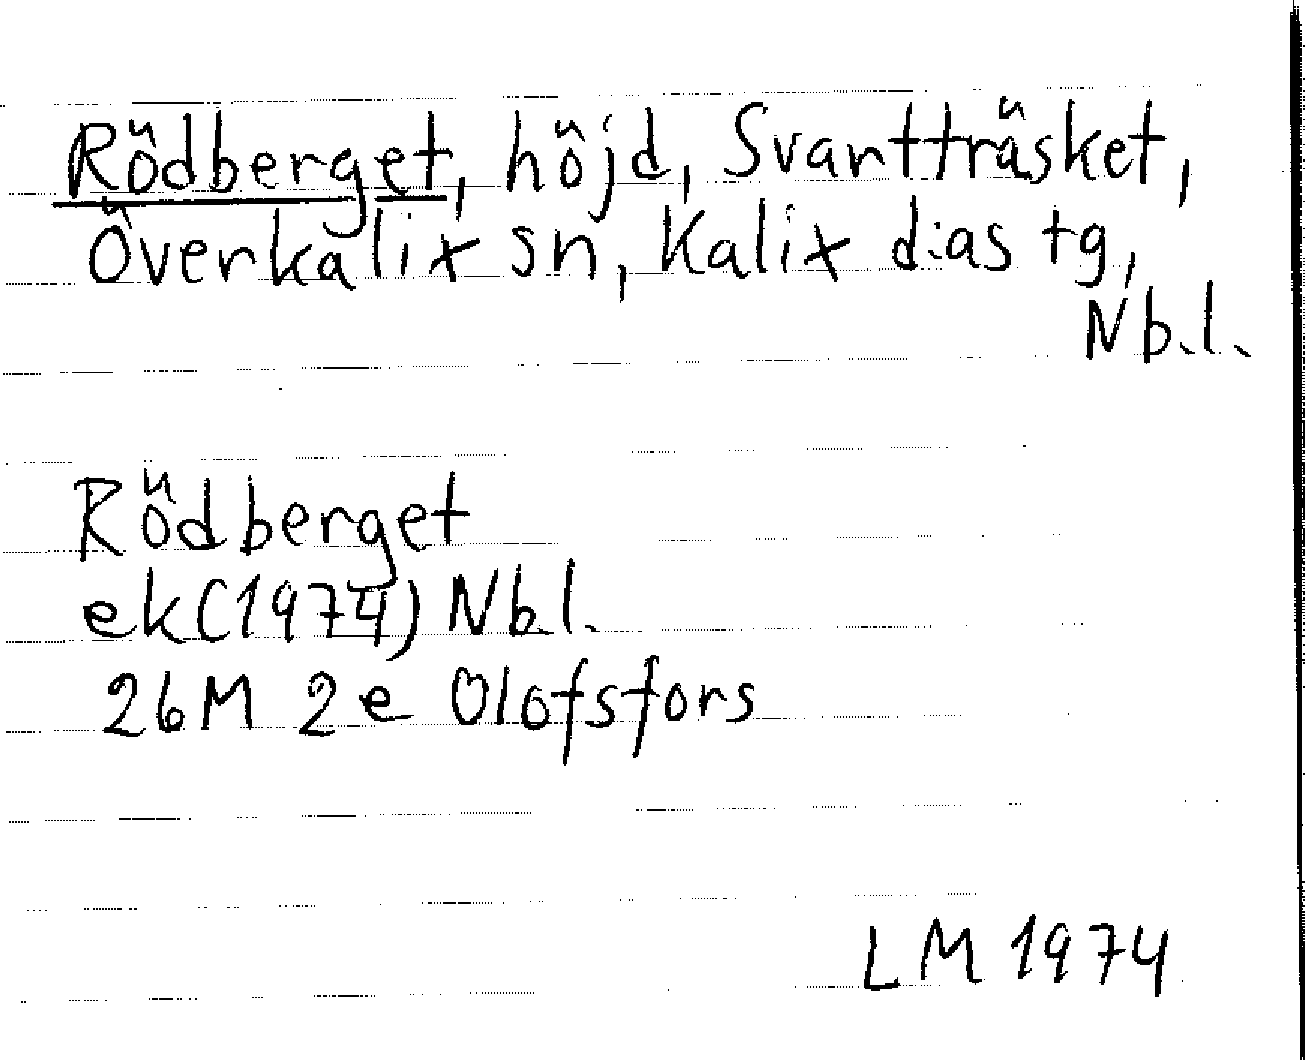 Rödberget, höjd, Svartträsket,
Överkalix sn, Kalix d:as tg,
Nb.l.
Rödberget
ek (1974) Nb.l.
26M 2e Olofsfors
LM 1974